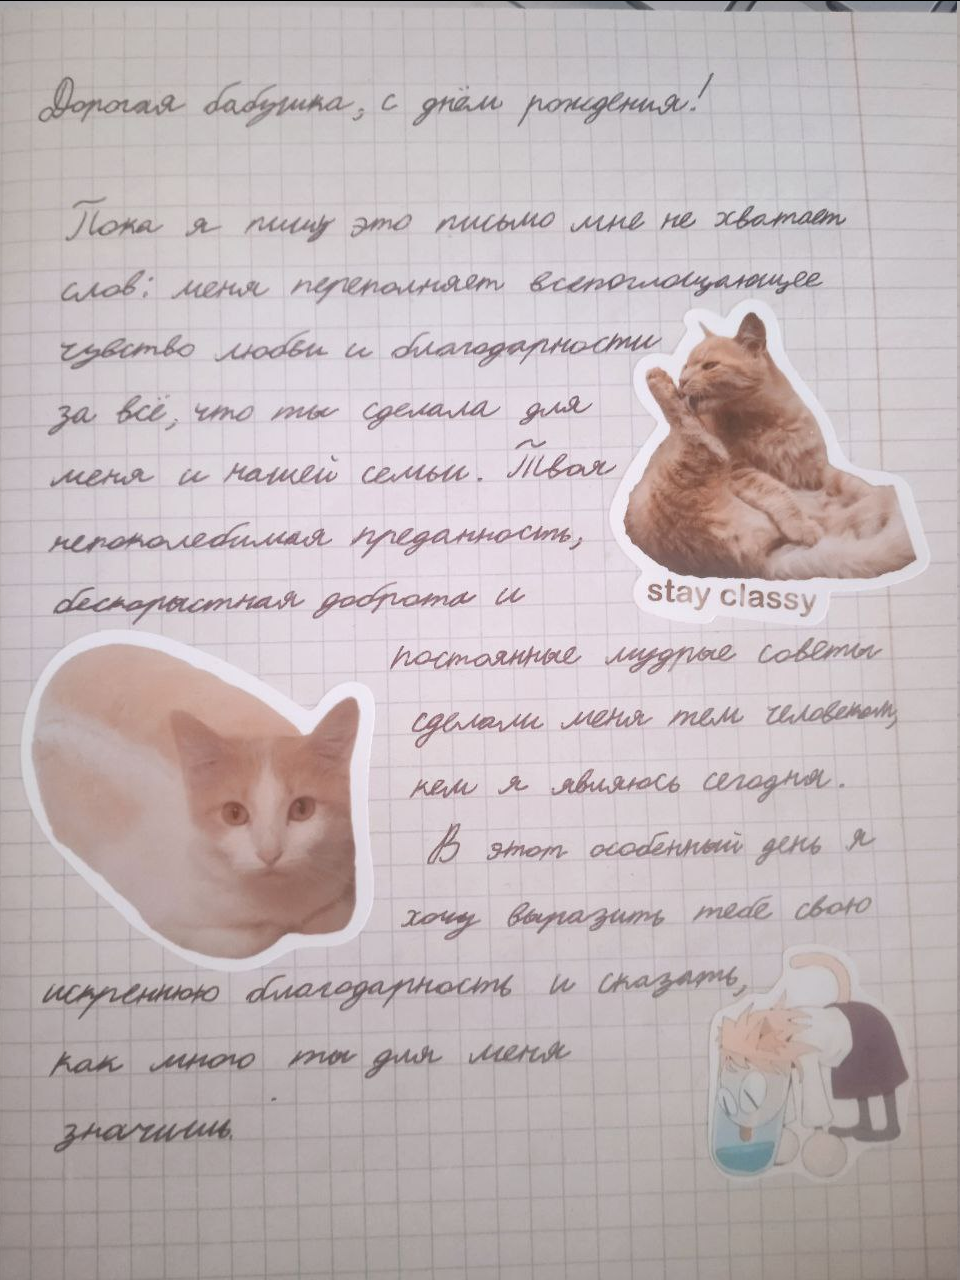 Дорогая бабушка, с днём рождения!
Пока я пишу это письмо мне не хватает
слов: меня переполняет всепоглощающее
чувство любви и благодарности
за всё, что ты сделала для
меня и нашей семьи. Твоя
непоколебимая преданность,
бескорыстная доброта и
stay classy
постоянные мудрые советы
сделали меня тем человеком,
кем я являюсь сегодня.
В этот особенный день я
хочу выразить тебе свою
искреннюю благодарность и сказать,
как много ты для меня
значишь.